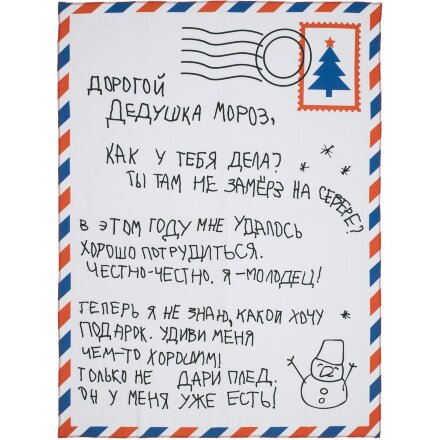 ДОРОГОЙ
ДЕДУШКА МОРОЗ,
КАК У ТЕБЯ ДЕЛА?
ТЫ ТАМ НЕ ЗАМЁРЗ НА СЕВЕРЕ?
В ЭТОМ ГОДУ МНЕ УДАЛОСЬ
ХОРОШО ПОТРУДИТЬСЯ.
ЧЕСТНО-ЧЕСТНО, Я-МОЛОДЕЦ!
ТЕПЕРЬ Я НЕ ЗНАЮ, КАКОЙ ХОЧУ
ПОДАРОК. УДИВИ МЕНЯ
ЧЕМ-ТО ХОРОШИМ!
ТОЛЬКО НЕ ДАРИ ПЛЕД.
ОН У МЕНЯ УЖЕ ЕСТЬ!